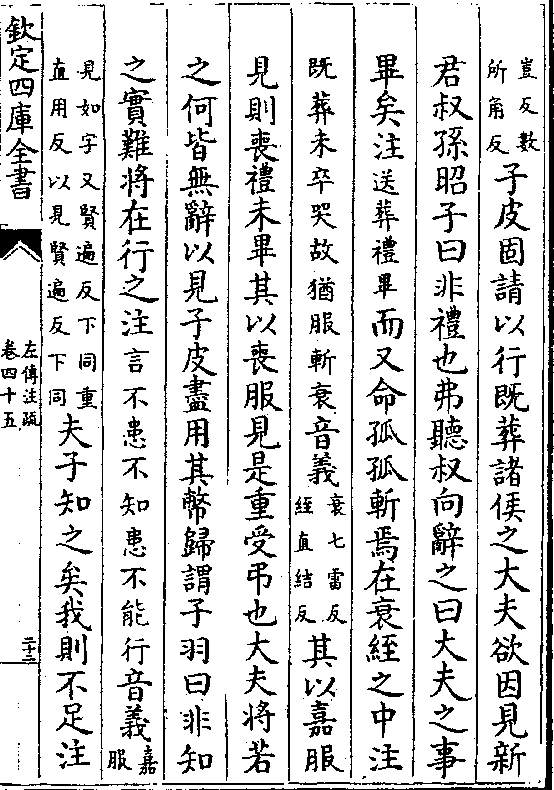 豈反數
所角反
子皮固請以行既葬諸侯之大夫欲因見新
君叔孫昭子曰非禮也弗聽叔向辭之曰大夫之事
畢矣注送葬禮畢而又命孤孤斬焉在衰絰之中注
既葬未卒哭故猶服斬衰音義
衰七雷反
絰直結反
其以嘉服
見則喪禮未畢其以喪服見是重受弔也大夫將若
之何皆無辭以見子皮盡用其幣歸謂子羽曰非知
之實難將在行之注言不患不知患不能行音義
嘉
服
見如字又賢遍反下同重
直用反以見賢遍反下同
夫子知之矣我則不足注
欽定四庫全書
左傳注疏
卷四十五